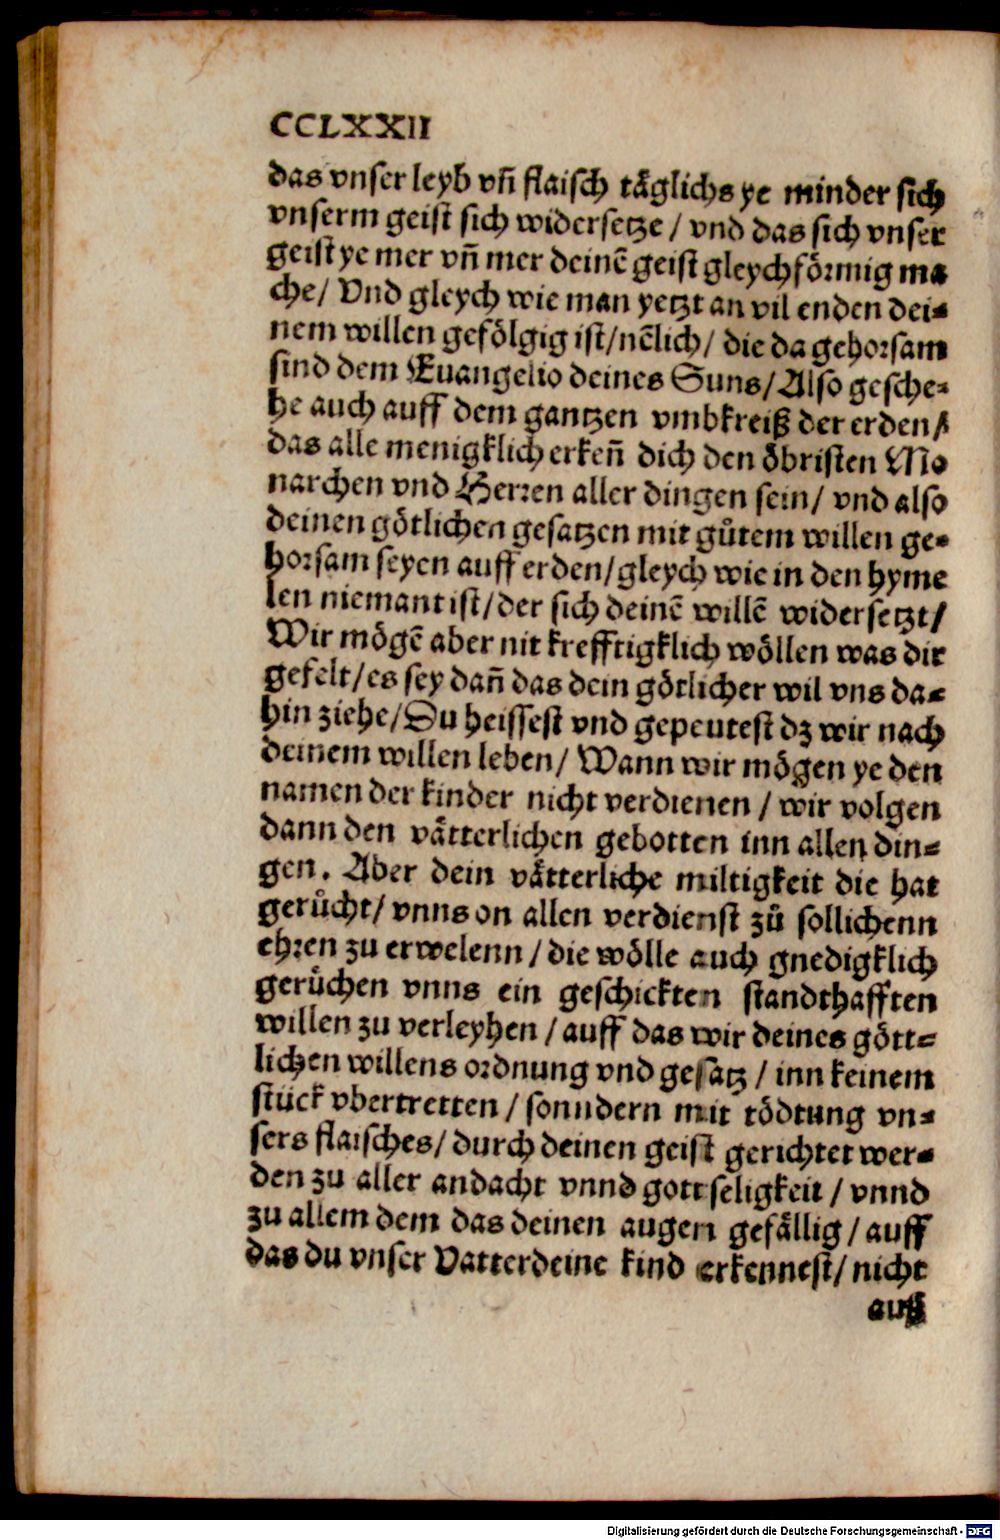 CCLXXII
das vnser leyb vñ flaisch täglichs ye minder sich
vnserm geist sich widersetze / vnd das sich vnser
geist ye mer vñ mer deinē geist gleychförmig ma
che/ Vnd gleych wie man yetzt an vil enden dei⸗
nem willen gefölgig ist/nēlich/ die da gehorsam
sind dem Euangelio deines Suns/Also gesche⸗
he auch auff dem gantzen vmbkreiß der erden/
das alle menigklich erkeñ dich den öbristen Mo
narchen vnd Herren aller dingen sein/ vnd also
deinen götlichen gesatzen mit gůtem willen ge⸗
horsam seyen auff erden/gleych wie in den hyme
len niemant ist/der sich deinē willē widersetzt/
Wir mögē aber nit krefftigklich wöllen was dir
gefelt/es sey dañ das dein götlicher wil vns da⸗
hin ziehe/Du heissest vnd gepeutest dz wir nach
deinem willen leben/ Wann wir mögen ye den
namen der kinder nicht verdienen / wir volgen
dann den vätterlichen gebotten inn allen din⸗
gen. Aber dein vätterliche miltigkeit die hat
gerůcht/ vnns on allen verdienst zů sollichenn
ehren zu erwelenn / die wölle auch gnedigklich
gerůchen vnns ein geschickten standthafften
willen zu verleyhen / auff das wir deines gött⸗
lichen willens ordnung vnd gesatz / inn keinem
stück vbertretten / sonndern mit tödtung vn⸗
sers flaisches/ durch deinen geist gerichtet wer⸗
den zu aller andacht vnnd gottseligkeit / vnnd
zu allem dem das deinen augen gefällig / auff
das du vnser Vatter deine kind erkennest/ nicht
auß
Digitalisierung gefördert durch die Deutsche Forschungsgemeinschaft - DFG